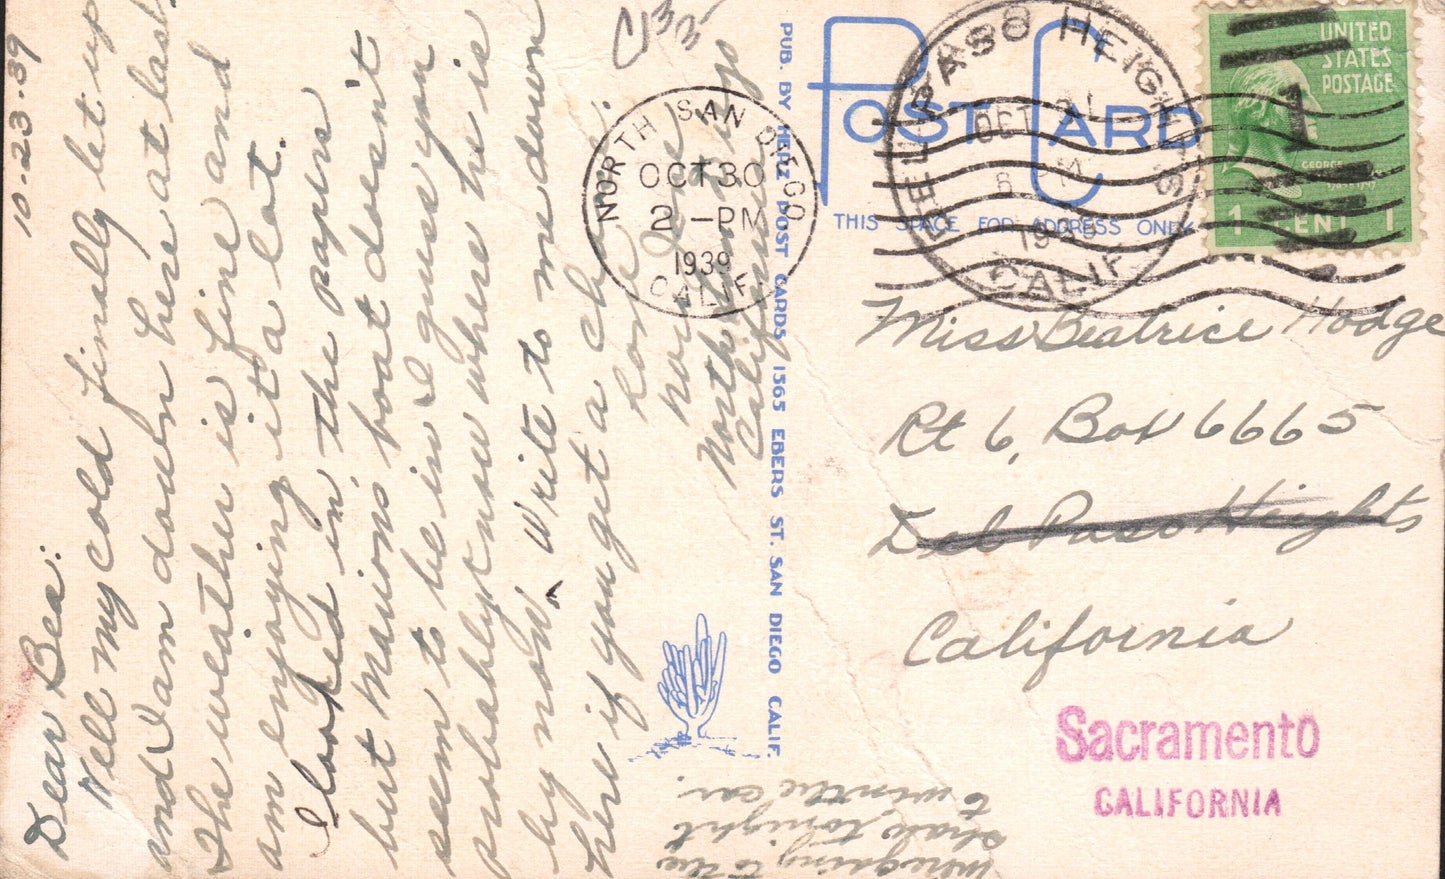 10-23-39
Dear Bea:
Well my cold finally let up
and I am down here at last
The weather is fine and
am enjoying it a lot.
I looked in the papers
but Marions boat doesn't
seem to be in I guess you
probably know where he is
by now. Write to me down
here if you get a chance.
Love
North
California
Were going to the
show tonight
to win the car.
PUB. BY HERZ POST CARDS 1565 EBERS ST. SAN DIEGO CALIF.
POST CARD
THIS SPACE FOR ADDRESS ONLY
NORTH SAN DIEGO
OCT 30
2 - PM
1939
CALIF.
DEL PASO HEIGHTS
OCT 31
PM
1939
CALIF.
UNITED
STATES
POSTAGE
1
GEORGE
WASHINGTON
1 CENT 1
Miss Beatrice Hodge
Rt 6, Box 6665
Del Paso Heights
California
Sacramento
CALIFORNIA